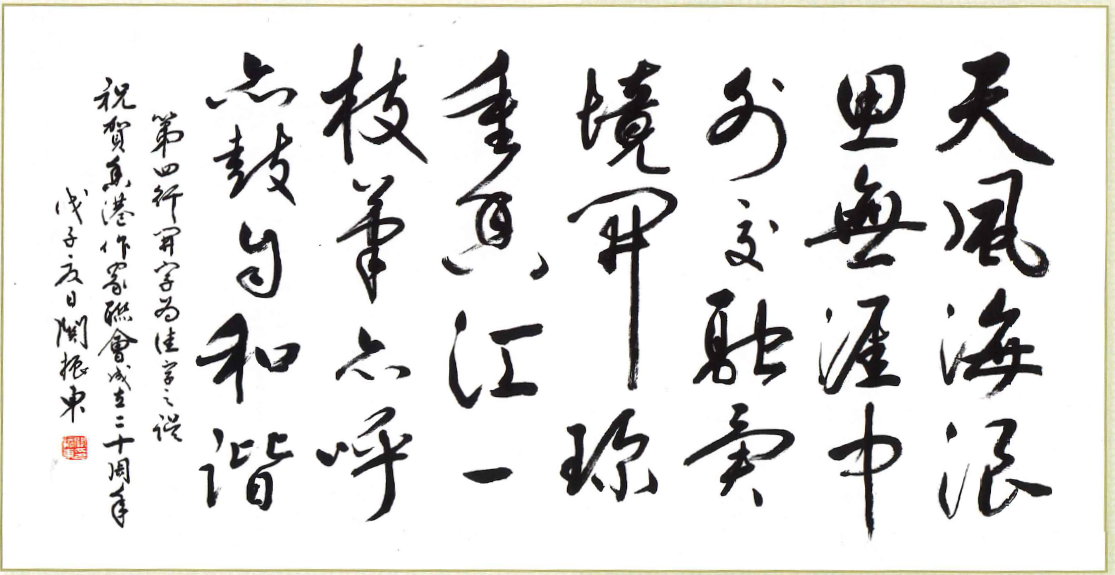 天風海浪
思無涯中
外交融異
境開珎
重香江一
枝筆亦呼
亦鼓自和諧
第四行開字為佳字之誤
祝賀香港作家聯會成立二十周年
戊子夏日關振東